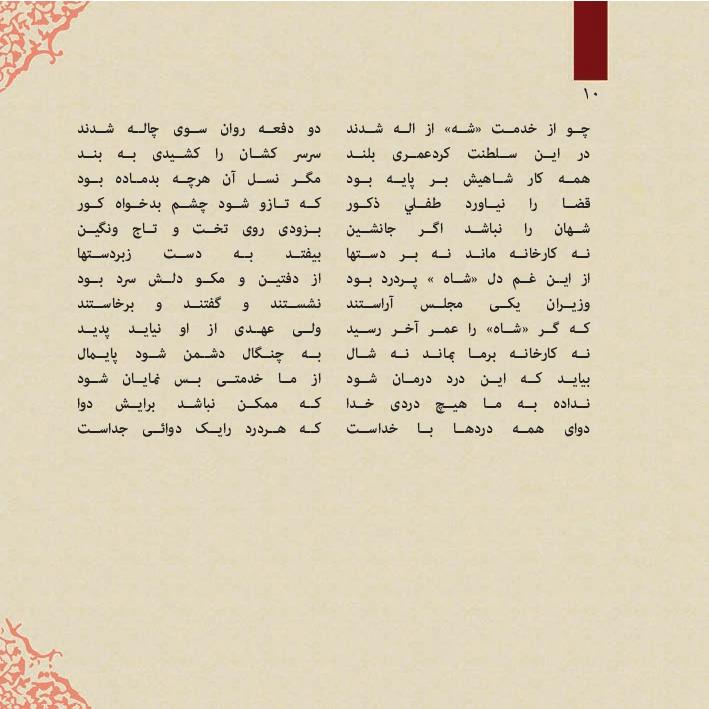 ۱۰
چو از خدمت «شه» از اله شدند دو دفعه روان سوی چاله شدند
در این سلطنت کردعمری بلند سرسر کشان را کشیدی به بند
همه کار شاهیش بر پایه بود مگر نسل آن هرچه بدماده بود
قضا را نیاورد طفلي ذکور که تازو شود چشم بدخواه کور
شهان را نباشد اگر جانشین بزودی روی تخت و تاج ونگین
نه کارخانه ماند نه بر دستها بیفتد به دست زبردستها
از این غم دل «شاه » پردرد بود از دفتین و مکو دلش سرد بود
وزیران یکی مجلس آراستند نشستند و گفتند و برخاستند
که گر «شاه» را عمر آخر رسید ولی عهدی از او نیاید پدید
نه کارخانه برما بماند نه شال به چنگال دشمن شود پایمال
بیاید که این درد درمان شود از ما خدمتی بس نمایان شود
نداده به ما هیچ دردی خدا که ممکن نباشد برایش دوا
دوای همه دردها با خداست که هردرد رایک دوائی جداست